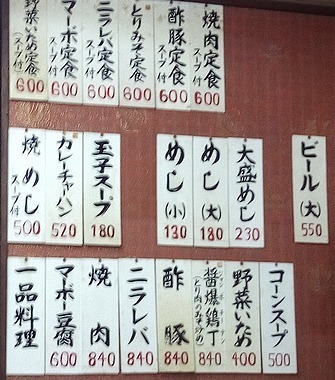 焼肉定食
スープ付
600
酢豚定食
スープ付
600
とりみそ定食
スープ付
600
ニラレバ定食
スープ付
600
マーボ定食
スープ付
600
野菜いため定食
(スープ付)
600
ビール(大)
550
大盛めし
230
めし(大)
180
めし(小)
130
玉子スープ
180
カレーチャーハン
520
焼めし
スープ付
500
コーンスープ
500
野菜いため
400
醤爆鶏丁
(とり肉のみそ炒め)
840
酢豚
840
ニラレバ
840
焼肉
840
マーボー豆腐
600
一品料理